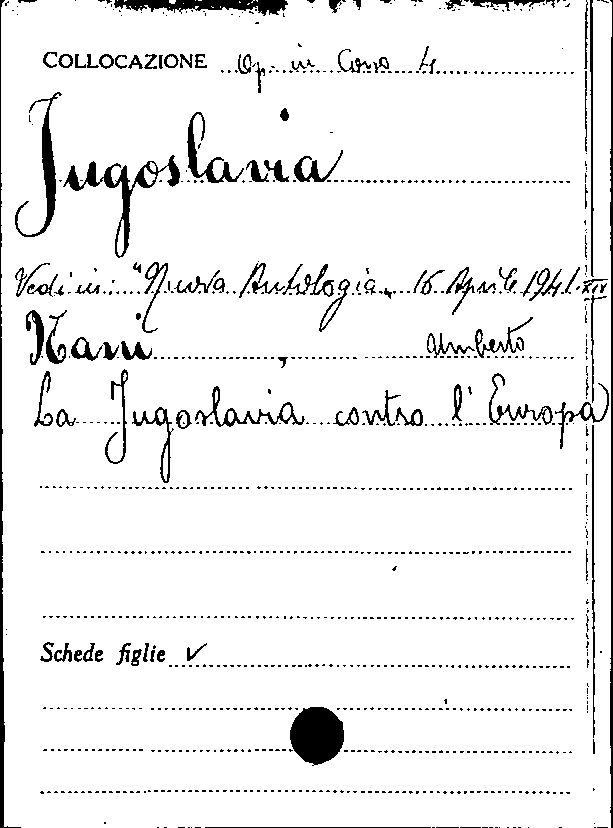 COLLOCAZIONE Op. in Corso 4
Jugoslavia
Vedi in: "Nuova Antologia" 16 Aprile 1941.XIX
Nani Umberto
La Jugoslavia contro l'Europa
Schede figlie ✓